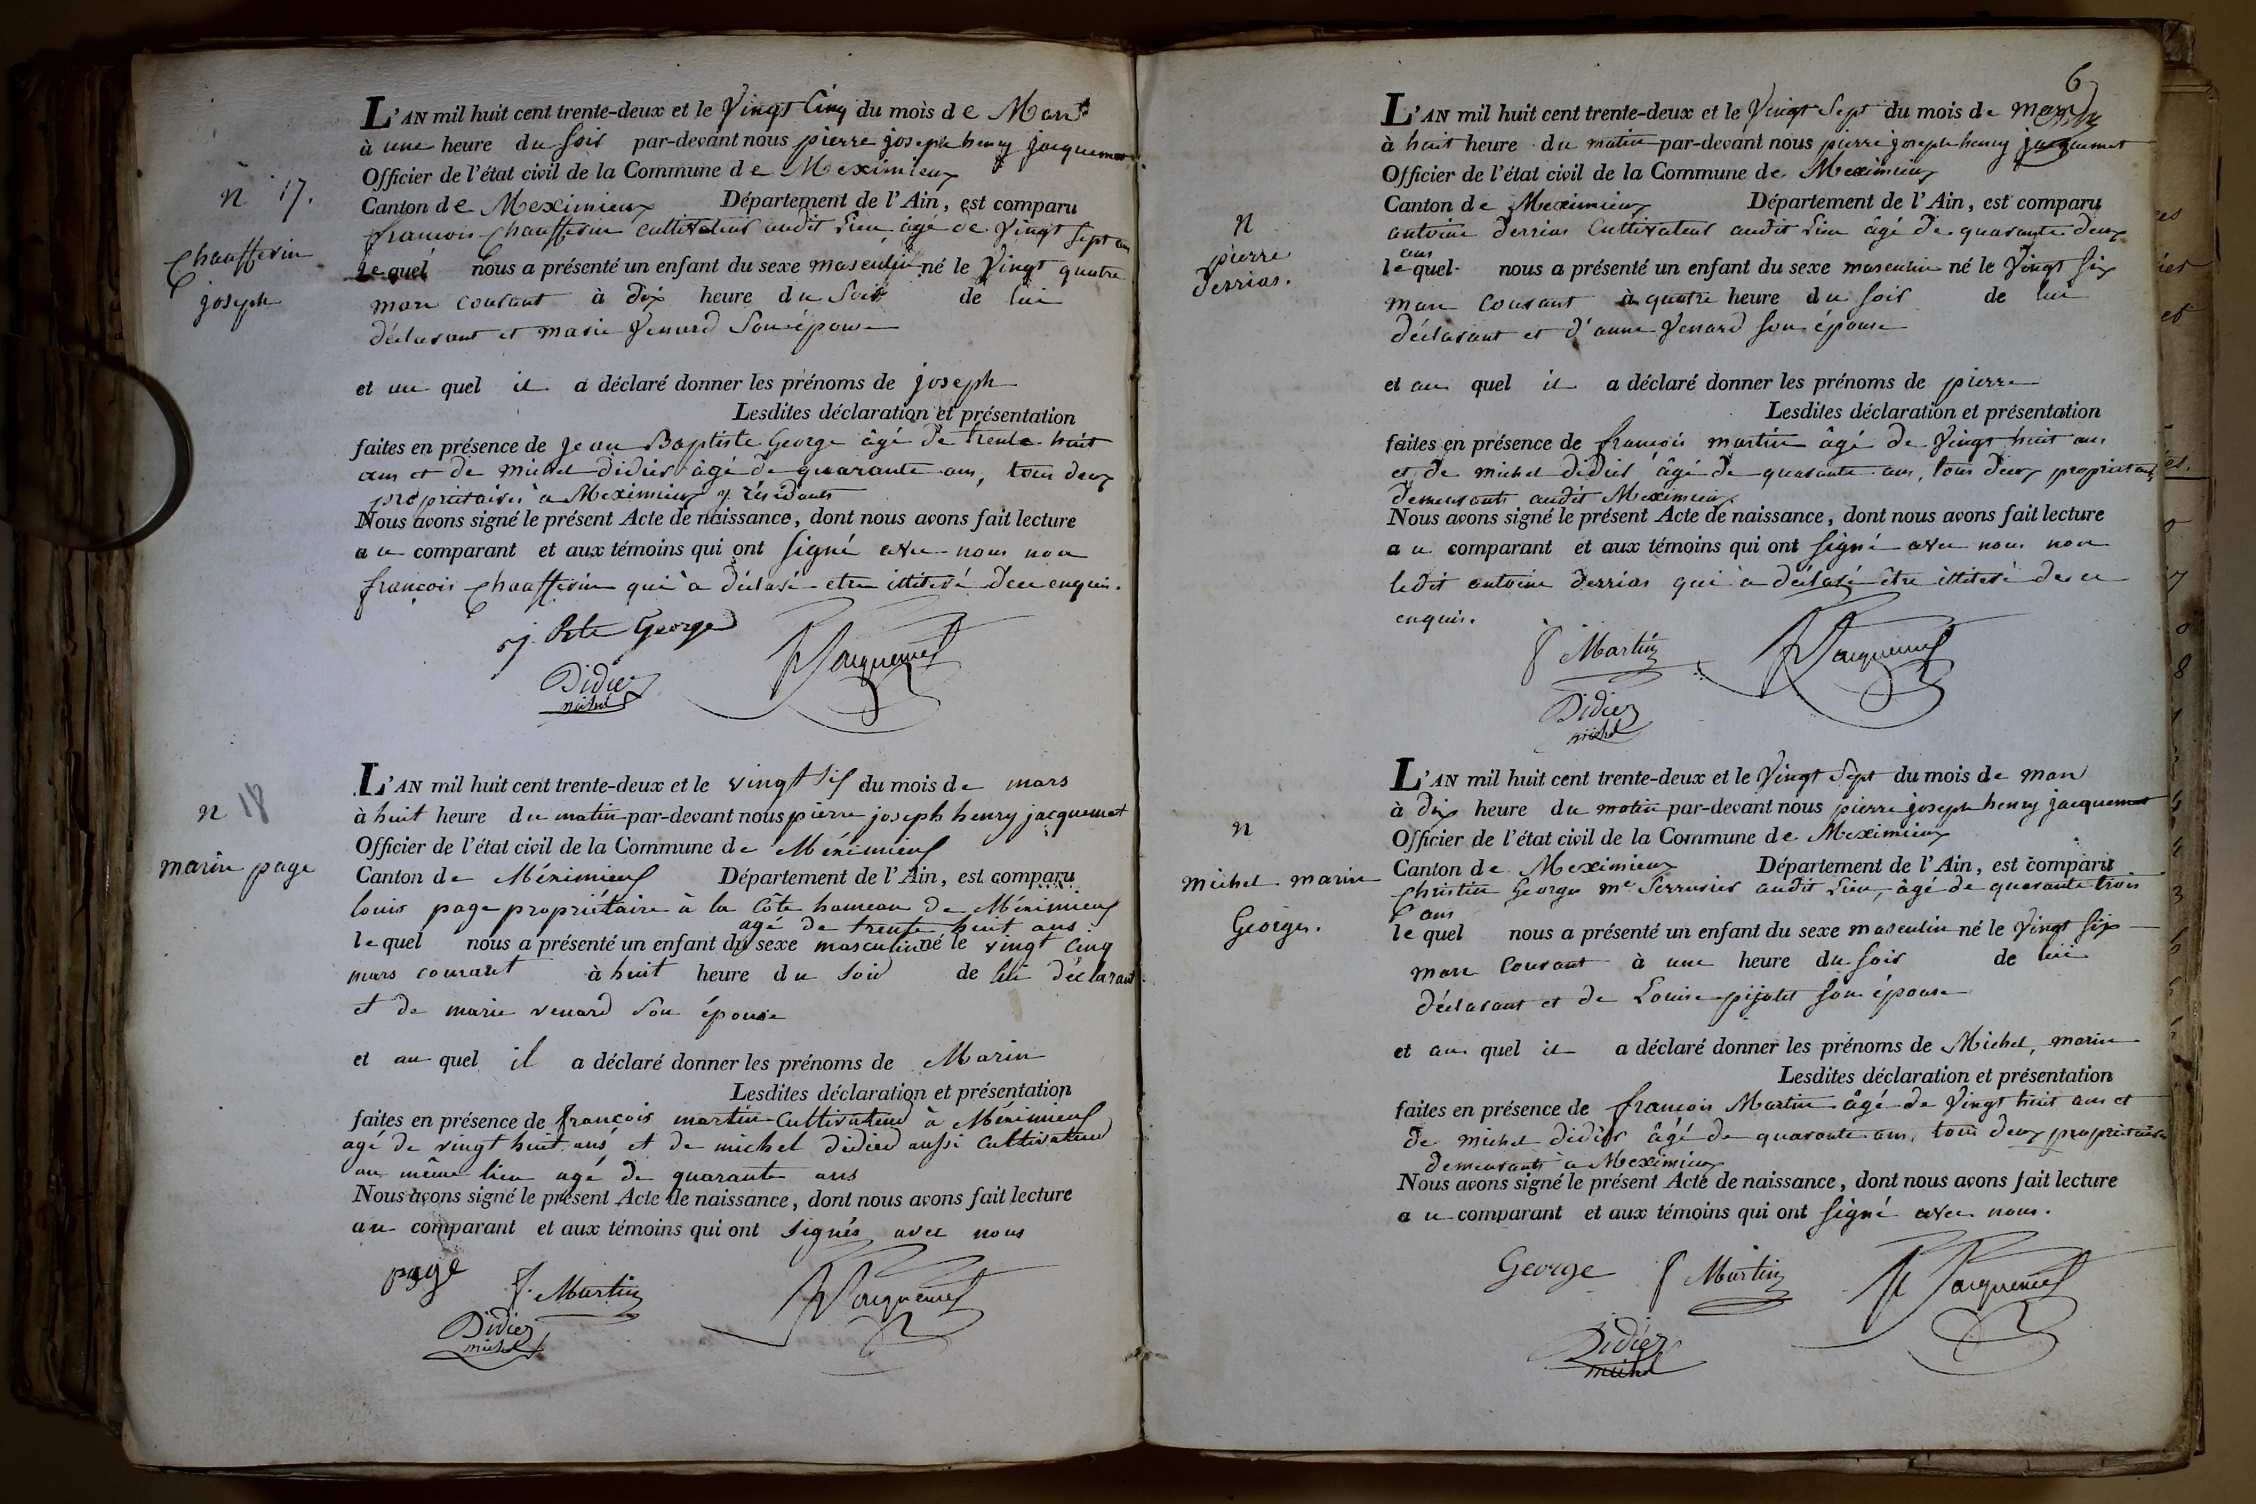 n 17.
Chaufferin
joseph
L'AN mil huit cent trente-deux et le Vingt Cinq du mois de Mars
à une heure du soir par-devant nous pierre joseph henry jacquemet
Officier de l'état civil de la Commune de Meximieux
Canton de Meximieux Département de l'Ain, est comparu
francois Chaufferin cultivateur audit Lieu âgé de Vingt sept ans
lequel nous a présenté un enfant du sexe masculin né le Vingt quatre
mars courant à dix heure du Soir de lui
déclarant et marie Venard Son épouse
et au quel il a déclaré donner les prénoms de joseph
Lesdites déclaration et présentation
faites en présence de Jean Baptiste George âgé de trente huit
ans et de michel didier âgé de quarante ans, tous deux
propriétaires a Meximieux y résidants
Nous avons signé le présent Acte de naissance, dont nous avons fait lecture
au comparant et aux témoins qui ont signé avec nous non
françois Chaufferin qui a déclaré etre illitéré de ce enquis.
j. Bte George
Jacquemet
Didier
michel
n 18
marin page
L'AN mil huit cent trente-deux et le vingt six du mois de mars
à huit heure du matin par-devant nous pierre joseph henry jacquemet
Officier de l'état civil de la Commune de Méximieux
Canton de Méximieux Département de l'Ain, est comparu
louis page propriétaire à la Côte hameau de Méximieux
agé de trente huit ans
lequel nous a présenté un enfant du sexe masculin né le vingt cinq
mars courant à huit heure du soir de lui déclarant
et de marie venard son épouse
et au quel il a déclaré donner les prénoms de Marin
Lesdites déclaration et présentation
faites en présence de françois martin Cultivateur à Méximieux
agé de vingt huit ans et de michel didier aussi Cultivateur
au même lieu agé de quarante ans
Nous avons signé le présent Acte de naissance, dont nous avons fait lecture
au comparant et aux témoins qui ont signés avec nous
page
f. Martin
Jacquemet
Didier
michel
6
n
pierre
derrias.
L'AN mil huit cent trente-deux et le Vingt Sept du mois de mars
à huit heure du matin par-devant nous pierre joseph henry jacquemet
Officier de l'état civil de la Commune de Meximieux
Canton de Meximieux Département de l'Ain, est comparu
antoine derrias Cultivateur audit Lieu âgé de quarante deux
ans
lequel nous a présenté un enfant du sexe masculin né le Vingt six
mars Courant à quatre heure du soir de lui
déclarant et d'anne Venard son épouse
et au quel il a déclaré donner les prénoms de pierre
Lesdites déclaration et présentation
faites en présence de francois martin âgé de Vingt huit ans
et de michel didier âgé de quarante ans, tous deux propriétaires
demeurants audit Meximieux
Nous avons signé le présent Acte de naissance, dont nous avons fait lecture
au comparant et aux témoins qui ont signé avec nous non
ledit antoine derrias qui a déclaré être illitéré de ce
enquis.
f Martin
Jacquemet
Didier
michel
n
michel marin
George.
L'AN mil huit cent trente-deux et le Vingt Sept du mois de mars
à dix heure du matin par-devant nous pierre joseph henry jacquemet
Officier de l'état civil de la Commune de Meximieux
Canton de Meximieux Département de l'Ain, est comparu
Christin George me Serrurier audit Lieu, âgé de quarante trois
ans
lequel nous a présenté un enfant du sexe masculin né le Vingt six
mars Courant à une heure du soir de lui
déclarant et de Louise pijolet son épouse
et au quel il a déclaré donner les prénoms de Michel, marin
Lesdites déclaration et présentation
faites en présence de francois Martin âgé de Vingt huit ans et
de michel didier âgé de quarante ans, tous deux propriétaires
demeurants a Meximieux
Nous avons signé le présent Acte de naissance, dont nous avons fait lecture
au comparant et aux témoins qui ont signé avec nous.
George
f Martin
Jacquemet
Didier
michel